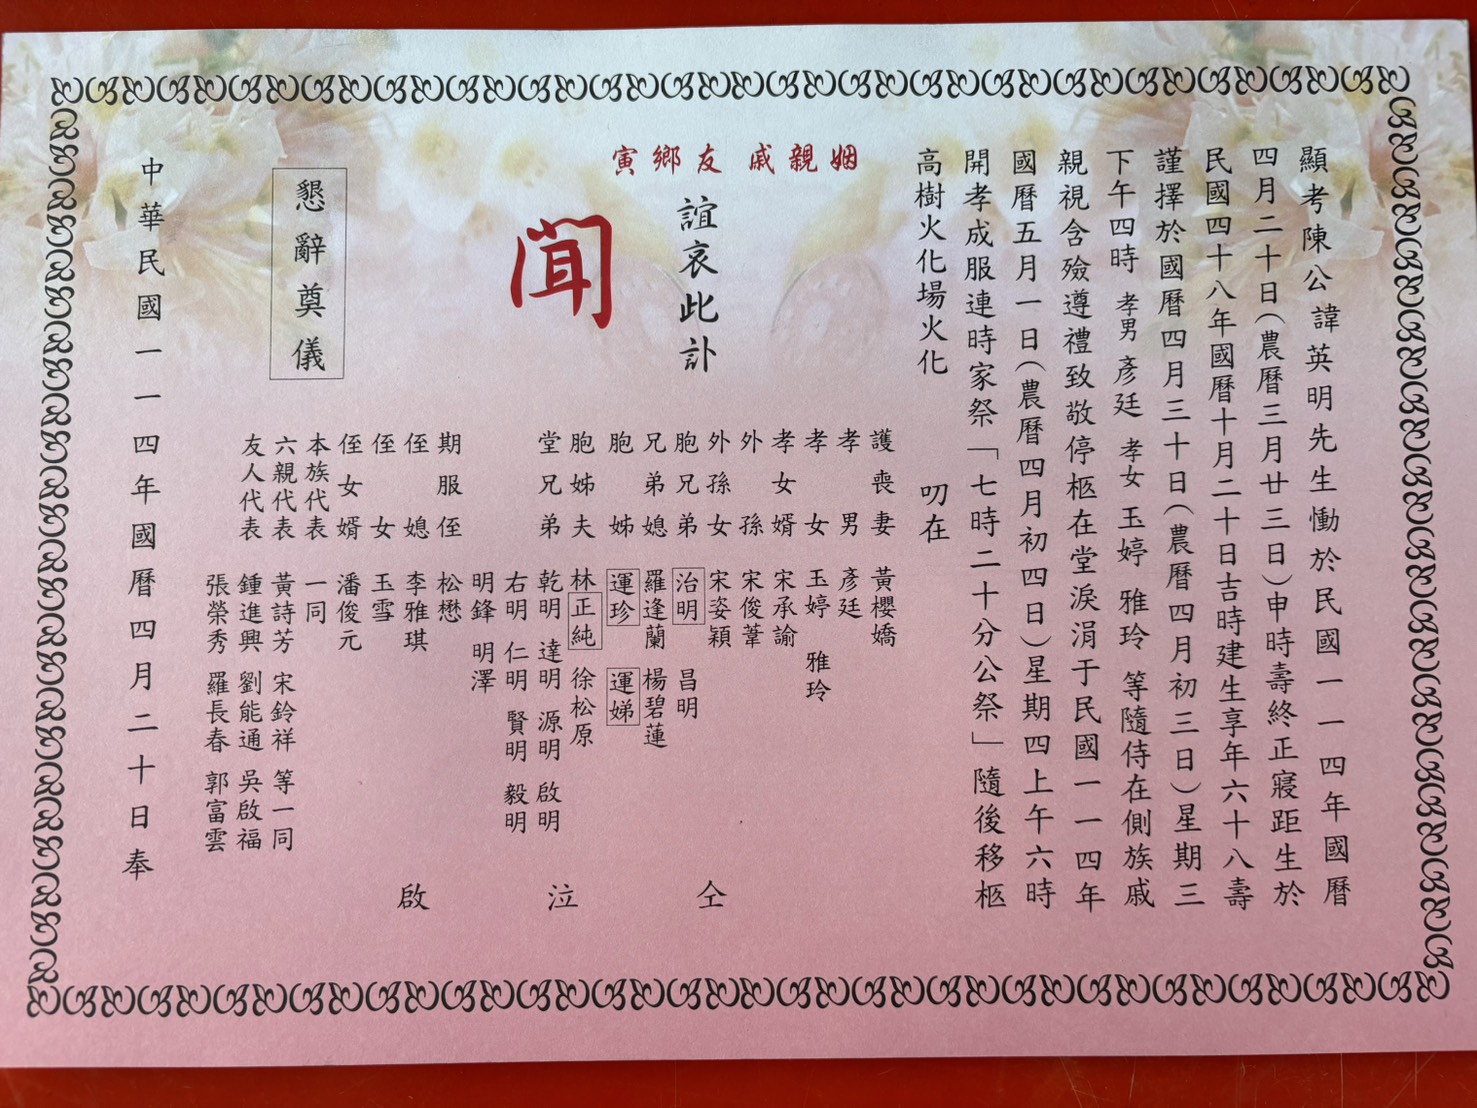 顯考陳公諱英明先生慟於民國一一四年國曆
四月二十日(農曆三月廿三日)申時壽終正寢距生於
民國四十八年國曆十月二十日吉時建生享年六十八壽
謹擇於國曆四月三十日(農曆四月初三日)星期三
下午四時 孝男 彥廷 孝女 玉婷 雅玲 等隨侍在側族戚
親視含殮遵禮致敬停柩在堂淚涓于民國一一四年
國曆五月一日(農曆四月初四日)星期四上午六時
開孝成服連時家祭「七時二十分公祭」隨後移柩
高樹火化場火化 叨在
姻親戚 友鄉寅
誼哀此訃
聞
護喪妻 黃櫻嬌
孝男 彥廷
孝女 玉婷 雅玲
孝女婿 宋承諭
外孫 宋俊葦
外孫女 宋姿穎
胞兄弟 治明 昌明
兄弟媳 羅逢蘭 楊碧蓮
胞姊 運珍 運娣
胞姊夫 林正純 徐松原
堂兄弟 乾明 達明 源明 啟明
右明 仁明 賢明 毅明
明鋒 明澤
期服侄 松懋
侄媳 李雅琪
侄女 玉雪
侄女婿 潘俊元
本族代表 一同
六親代表 黃詩芳 宋鈴祥 等一同
友人代表 鍾進興 劉能通 吳啟福
張榮秀 羅長春 郭富雲
仝 泣 啟
懇辭奠儀
中華民國一一四年國曆四月二十日奉